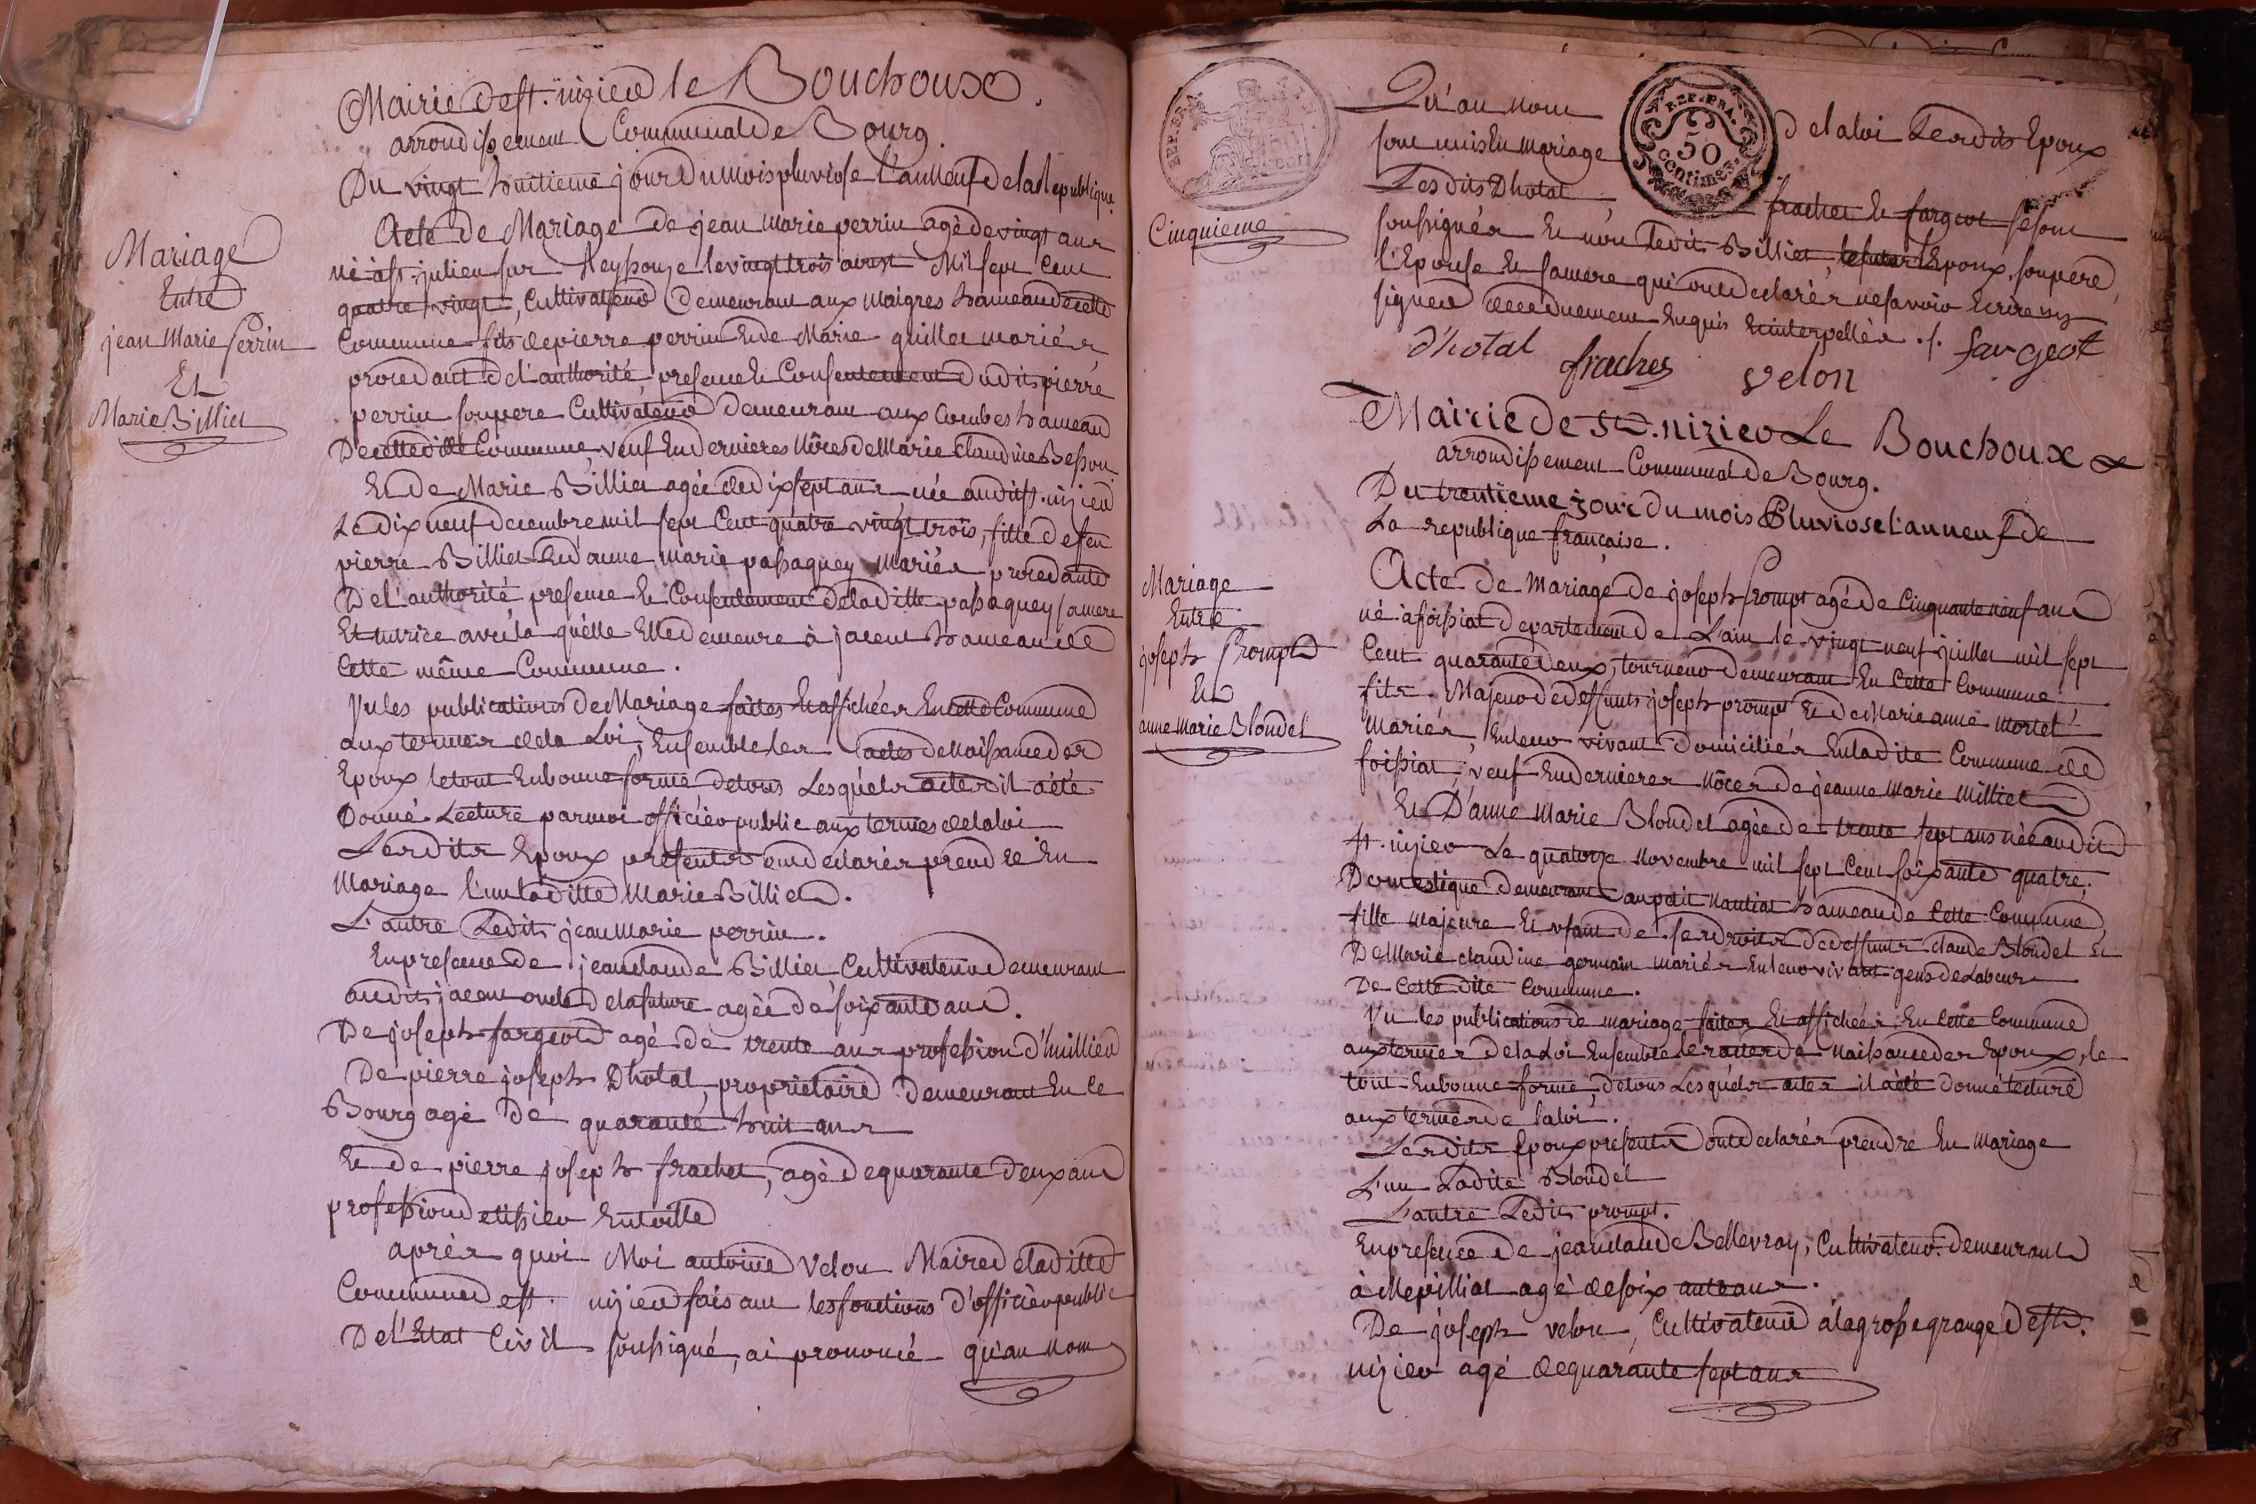 Mairie de st. nizier le Bouchoux.
arrondissement Communal de Bourg.
Du vingt huitieme jour du mois pluviose l'an neuf de la Republique.
Mariage
Entre
jean Marie Perrin
Et
Marie Billiet
Acte de Mariage de jean marie perrin agé de vingt ans
né à st. julien sur Reyssouze le vingt trois aoust Mil sept Cent
quatre vingt, Cultivateur demeurant aux maigres hameau de cette
Commune fils de pierre perrin et de Marie guillet mariés
procedant de l'authorité, presence et Consentement dudit pierre
perrin son pere Cultivateur demeurant aux Combes hameau
De cette ditte Commune, veuf En dernieres Nôces de Marie Claudine Besson
Et de Marie Billiet agée de dix sept ans née audit st. nizier
Le dix neuf decembre mil sept Cent quatre vingt trois, fille de feu
pierre Billiet Et d'anne marie passaquey Mariés, procedante
De l'authorité, presence Et Consentement de laditte passaquey sa mere
Et tutrice avec la quelle Elle demeure à jacent hameau de
Cette même Commune.
Vu les publications de Mariage faites Et affichées En cette Commune
aux termes de la Loi, Ensemble les actes de Naissance des
Epoux le tout En bonne forme de tous Lesquels actes il a été
Donné Lecture par moi officier public aux termes de la loi
Lesdits Epoux presents ont declarés prendre En
Mariage l'un laditte Marie Billiet.
L'autre Ledit jean Marie perrin.
En presence de jean claude Billiet Cultivateur demeurant
audit jacent oncle de la future agée de soixante ans.
De joseph fargeot agé de trente ans profession d'huillier
De pierre joseph Dhotal, proprietaire demeurant En ce
Bourg agé De quarante huit ans
Et de pierre joseph frachet, agé de quarante deux ans
profession de tissier En toille
après quoi Moi antoine Velon Maire de laditte
Commune de st. nizier faisant les fonctions d'officier public
De l'Etat Civil soussigné, ai prononcé qu'au nom
REP. FRA.
REP. FRA.
50
centimes
Cinquieme
Qu'au nom de la loi Lesdits Epoux
sont unis En mariage
Lesdits Dhotal frachet Et fargeot se sont
soussignés Et non Ledit Billiet, le futur Epoux, son pere,
l'Epouse Et sa mere qui ont declarés ne savoir Ecrire ny
signer de ce duement Enquis Et interpellés ./. fargeot
d'hotal frachet velon
Mairie De St. nizier Le Bouchoux
arrondissement Communal de Bourg.
Du trentieme jour du mois Pluviose l'an neuf de
La republique française.
Mariage
Entre
joseph Prompt
Et
anne Marie Blondel
Acte de Mariage de joseph Prompt agé de Cinquante neuf ans
né à foissiat departement de L'ain le vingt neuf juillet mil sept
Cent quarante deux, tourneur demeurant En Cette Commune
fils Majeur de deffunts joseph prompt Et de Marie anne mortel
Mariés, En leur vivant domiciliés En ladite Commune de
foissiat, veuf En dernieres Nôces de jeanne Marie Milliet
Et D'anne Marie Blondel agée de trente sept ans née audit
st. nizier Le quatorze Novembre mil sept Cent soixante quatre,
Domestique demeurant au petit Nantiat hameau de Cette Commune,
fille majeure Et usant de ses droits de deffunts claude Blondel Et
De Marie claudine germain mariés En leur vivant gens de Labeur
De Cette dite Commune.
Vu les publications de mariage faites Et affichées En Cette Commune
aux termes de la Loi Ensemble les actes de Naissance des Epoux, le
tout En bonne forme, de tous Lesquels actes il a été donné lecture
aux termes de la loi.
Lesdits Epoux presents ont declarés prendre En Mariage
L'un Ladite Blondel
L'autre Ledit prompt.
En presence de jean claude Bellevray, Cultivateur demeurant
à Mepilliat agé de soixante ans.
De joseph velon, Cultivateur à la grosse grange de st.
nizier agé de quarante sept ans